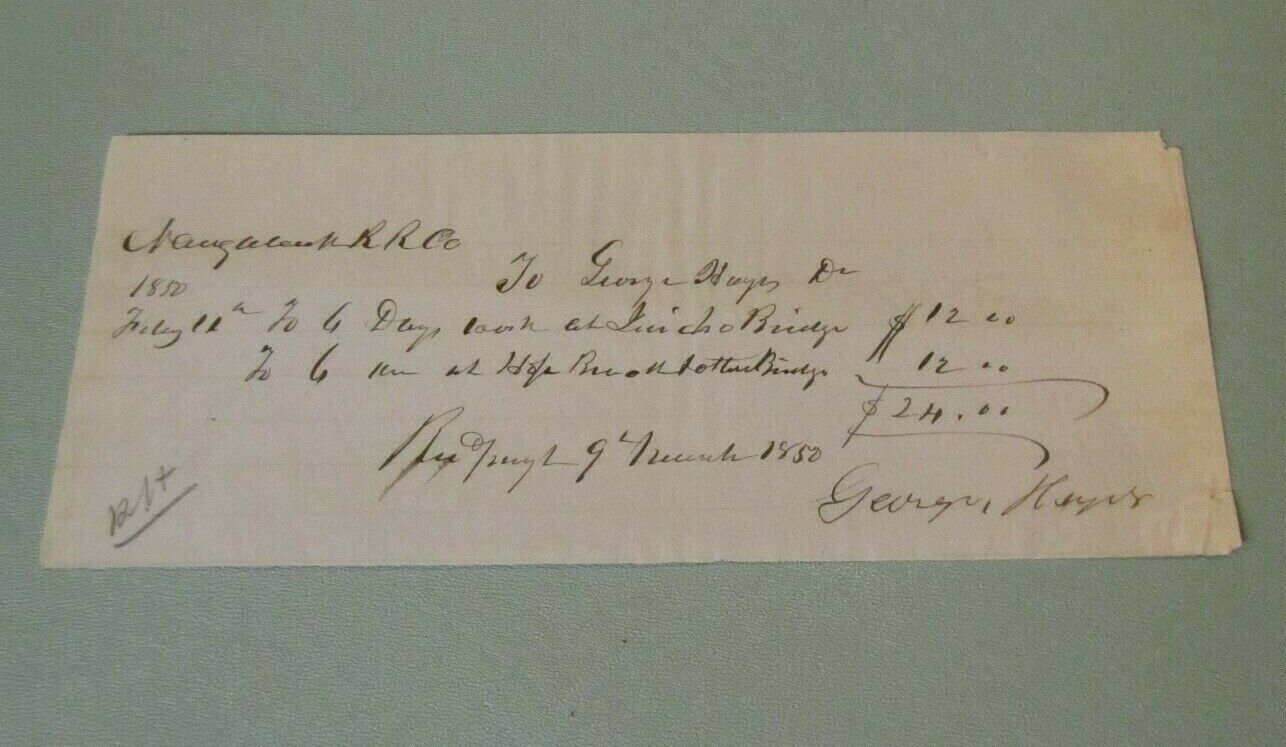 Naugatuck R R Co
To George Hayes Dr
1850
Feby 11th To 6 Days work at Jericho Bridge $12 00
To 6 at Hop Brook Bridge 12 00
$24.00
9th March 1850
George Hayes